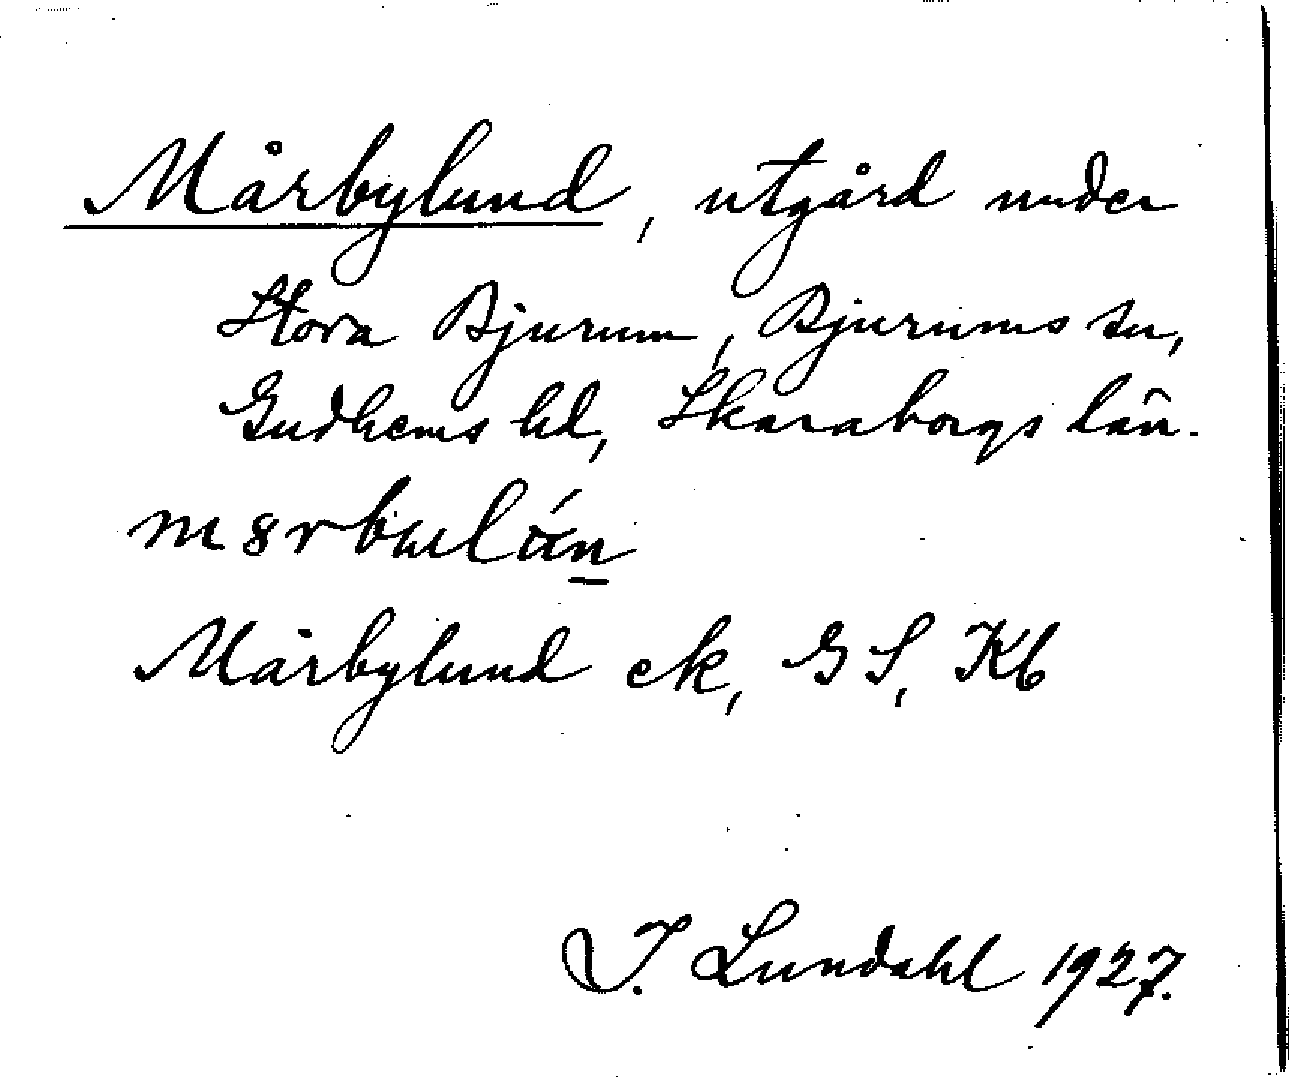 Mårbylund, utgård under
Stora Bjurum, Bjurums sn,
Gudhems hd, Skaraborgs län.
Mårbylund ek, GS, Kb
I. Lundahl 1927.